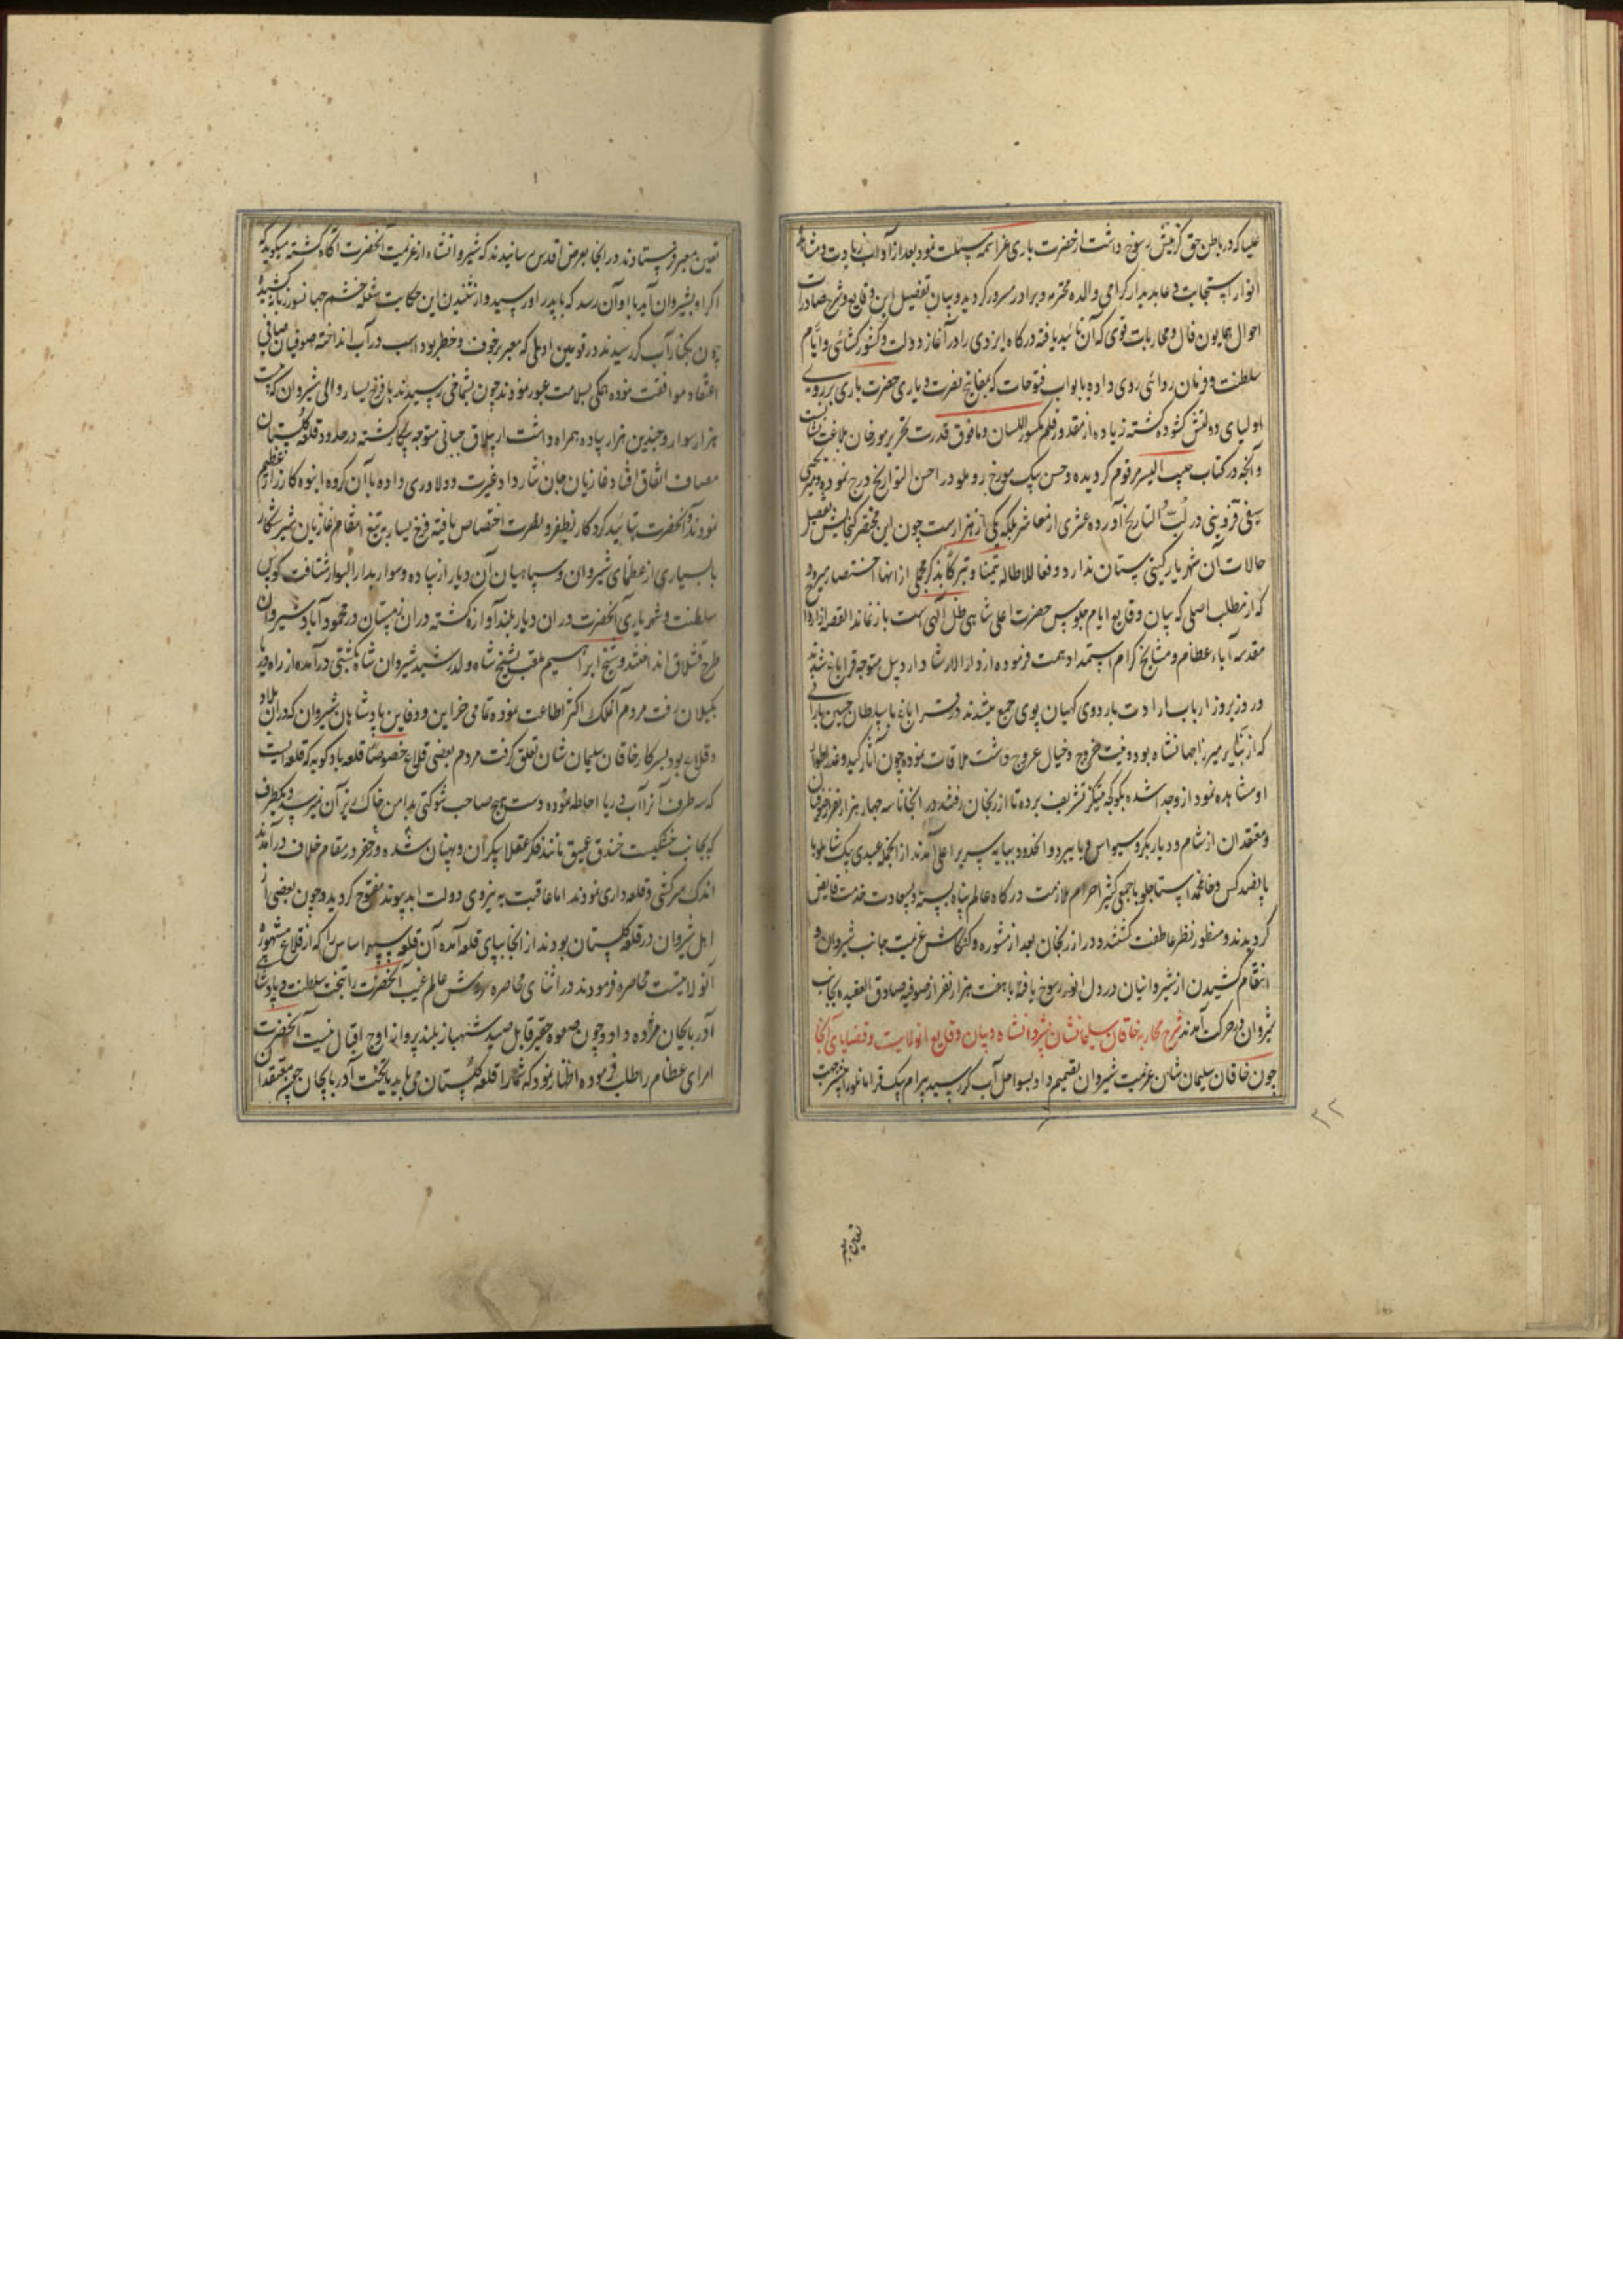 علیا که در باطن حق گزینش رسوخ داشت از حضرت باری عز اسمه مسئلت نمود بعد از آداب زیارت و مشاهده
انوار استجابت دعا بدیدار گرامی والده محترمه و برادر مسرور گردید و بیان تفصیل این وقایع و شرح صادرات
احوال همایون فال و محاربات قوی که آن تائید یافته درگاه ایزدی را در آغاز دولت و کشور کشائی و ایام
سلطنت و فرمان روائی روی داده با ابواب فتوحات که بمفاتیح نصرت و یاری حضرت باری بر روی
اولیای دولتش گشوده گشته زیاده از مقدور قلم مکسور اللسان و ما فوق قدرت تحریر مورخان بلاغت نشانست
و آنچه در کتاب حبیب السیر مرقوم گردیده و حسن بیک مورخ روملو در احسن التواریخ درج نموده و میر یحیی
سیفی قزوینی در لب التاریخ آورده عشری از معاشر بلکه یکی از هزارست چون این مختصر گنجایش تفصیل
حالات آن شهریار گیتی ستان ندارد دفعا للاطاله تیمنا و تبرکا بذکر مجملی از آنها اختصار میرود
که از مطلب اصلی که بیان وقایع ایام جلوس حضرت اعلی شاهی ظل الهی است باز نماند القصه از ارواح
مقدسه آباء عظام و مشایخ کرام استمداد همت فرموده از دار الارشاد اردبیل متوجه قراباغ شدند
و روز بروز ارباب ارادت باردوی کیهان پوی جمع میشدند در قراباغ با سلطان حسین بارانی
که از نبایر میرزا جهانشاه بود و نیت خروج و خیال عروج داشت ملاقات نموده چون آثار کید و غدر از اطوار
او مشاهده نمود از وجدا شده بکوکجه دنیکز تشریف برده تا ارزنجان رفتند در آنجا تا سه چهار هزار نفر از صوفیان
و معتقدان از شام و دیار بکر و سیواس و بایبرد و آنحدود بپایه سریر اعلی آمدند از آنجمله عبدی بیک شاملو با
پانصد کس و خان محمد استاجلو با جمعی کثیر احرام ملازمت درگاه عالم پناه بسته و بسعادت خدمت فایض
گردیدند و منظور نظر عاطفت گشتند و در ارزنجان بعد از مشوره و کنکاش عزیمت جانب شیروان و
انتقام کشیدن از شیروانیان در دل انور رسوخ یافته با هفت هزار نفر از صوفیه صادق العقیده بجانب
شیروان در حرکت آمدند شرح محاربه خاقان سلیمانشان بشروانشاه و بیان وقایع آنولایت و قضایای آنجا
چون خاقان سلیمان شان عزیمت شیروان تصمیم داد بسواحل آب کر رسید بیرام بیک قرامانلو را جهت
۲۲
تعیین معبر
تعیین معبر فرستادند در آنجا بعرض اقدس رسانیدند که شیروانشاه از عزیمت آنحضرت آگاه گشته میگوید که
اگر او بشیروان آید باو آن رسد که بپدر او رسید و از شنیدن این حکایت شعله خشم جهانسوز زبانه کشیده
چون بکنار آب کر رسیدند در قوین اولمی که معبر پر خوف و خطر بود اسب در آب انداخته صوفیان صافی
اعتقاد موافقت نموده همگی بسلامت عبور نمودند چون بشماخی رسیدند با فرخ یسار والی شیروان که بیست
هزار سوار و چندین هزار پیاده همراه داشت از ییلاق جبانی متوجه پیکار گشته در حدود قلعه گلستان
مصاف اتفاق افتاد غازیان جان نثار داد غیرت و دلاوری داده با آن گروه انبوه کارزار عظیم
نمودند و آنحضرت بتائید کردگار بظفر و نصرت اختصاص یافته فرخ یسار به تیغ انتقام غازیان شیر شکار
با بسیاری از عظمای شیروان و سپاهیان آن دیار از پیاده و سوار بدار البوار شتافت کوس
سلطنت و شهریاری آنحضرت در ان دیار بلند آوازه گشته در ان زمستان در محمود آباد شیروان
طرح قشلاق انداختند و شیخ ابراهیم ملقب بشیخ شاه ولد رشید شیروان شاه بکشتی درآمده از راه دریا
بگیلان رفت مردم آنملک اکثر اطاعت نموده تمامی خزاین و دفاین پادشاهان شیروان که در ان بلاد
و قلاع بود بسرکار خاقان سلیمان شان تعلق گرفت مردم بعضی قلاع خصوصا قلعه بادکوبه که قلعه ایست
که سه طرف آنرا آب دریا احاطه نموده دست هیچ صاحب شوکتی بدامن خاک ریز آن نرسیده و یکطرف
که بجانب خشکیست خندق عمیق مانند فکر عقلا بیکران و پنهان شده و در حفر در مقام خلاف درآمدند
اندک سرکشی و قلعه داری نمودند اما عاقبت به نیروی دولت ابد پیوند مفتوح گردید و چون بعضی از
اهل شیروان در قلعه گلستان بودند از آنجا بپای قلعه آمده آن قلعه سپهر اساس را که از قلاع مشهوره
آنولایتست محاصره فرمودند در اثنای محاصره سروش عالم غیب آنحضرت را بتخت سلطنت و پادشاهی
آذربایجان مژده داد و چون صعوه حقیر قابل صید شهباز بلند پرواز اوج اقبال نیست آنحضرت
امرای عظام را طلب فرموده اظهار نمود که شما را قلعه گلستان می باید یا تخت آذربایجان چون معتقدان